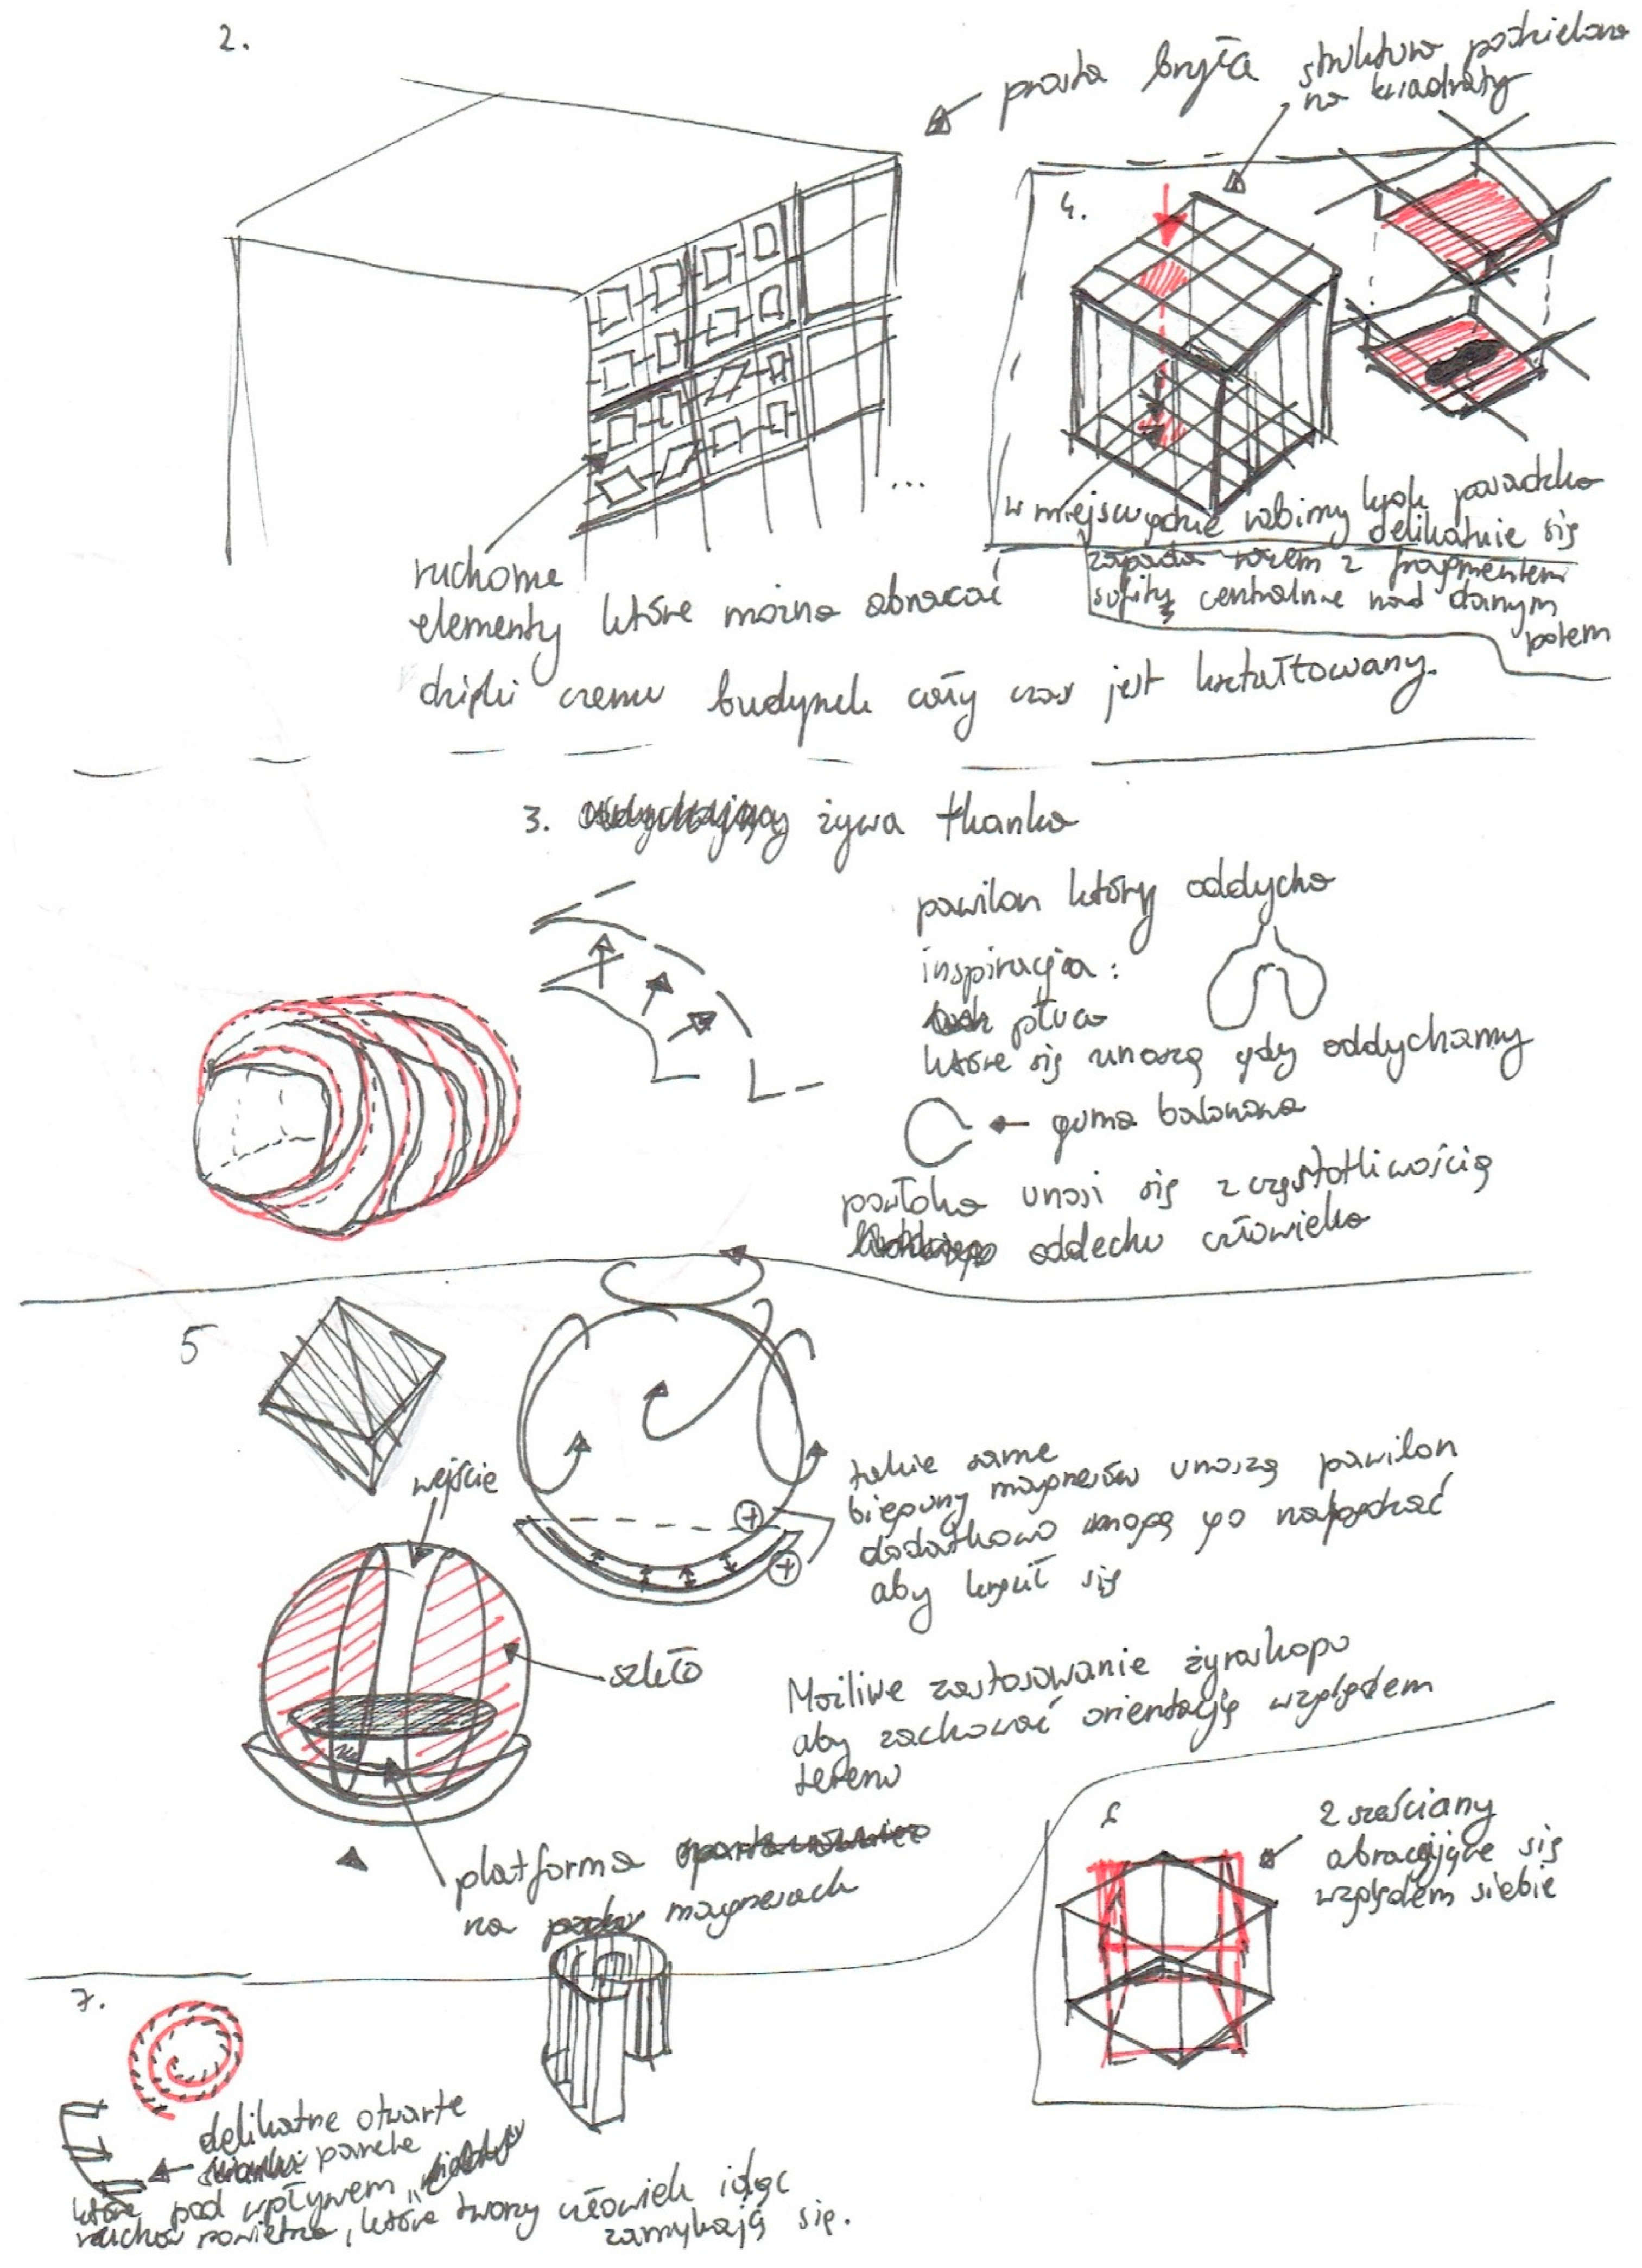 2.
prosta bryła
struktura podzielona
na kwadraty
4.
w miejscu gdzie robimy krok posadzka
delikatnie się
zapada razem z fragmentem
sufitu centralnie nad danym
polem
ruchome
elementy które można obracać
dzięki czemu budynek cały czas jest kształtowany.
...
3. żywa tkanka
pawilon który oddycha
inspiracja:
płuca
które się unoszą gdy oddychamy
guma balonowa
powłoka unosi się z częstotliwością
oddechu człowieka
5
wejście
takie same
bieguny magnesów unoszą pawilon
dodatkowo mogą go napędzać
aby kręcił się
+
+
szkło
Możliwe zastosowanie żyroskopu
aby zachować orientację względem
terenu
platforma
na magnesach
2 sześciany
obracające się
względem siebie
7.
delikatne otwarte
panele
które pod wpływem
ruchów powietrza, które tworzy człowiek idąc
zamykają się.